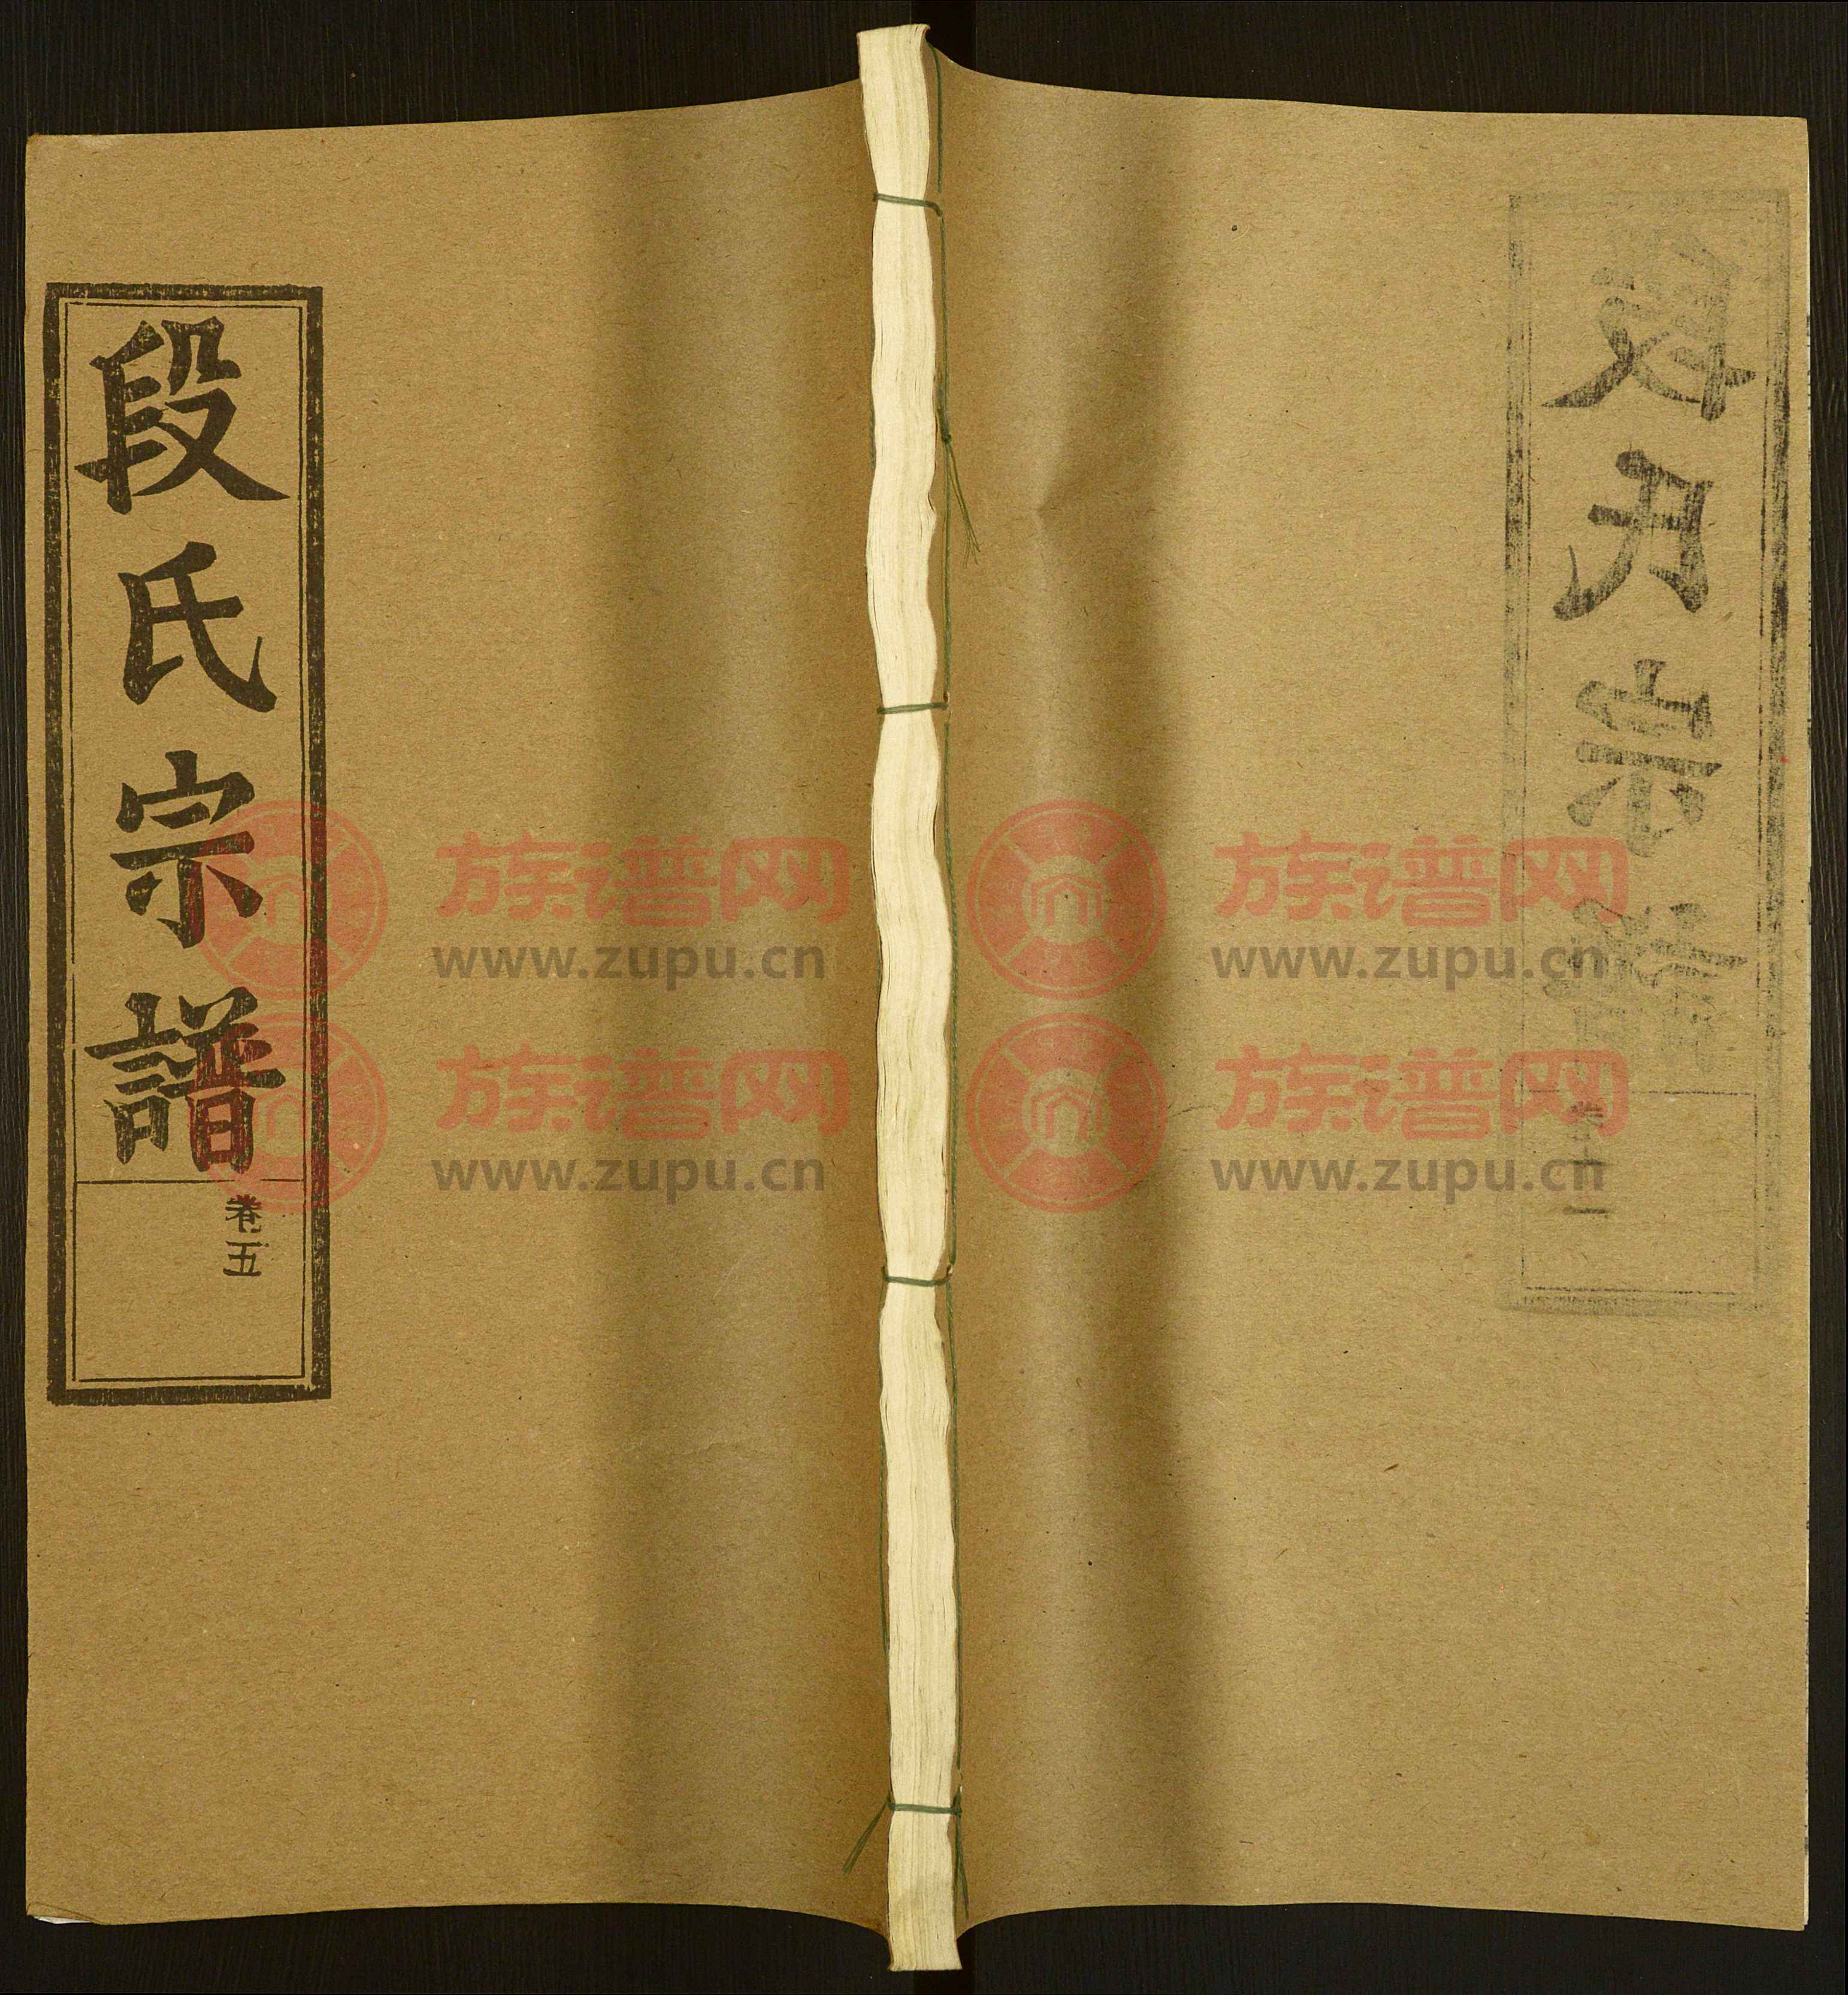 段氏宗譜
卷五
族谱网
www.zupu.cn
族谱网
www.zupu.cn
族谱网
www.zupu.cn
族谱网
www.zupu.cn
宗譜